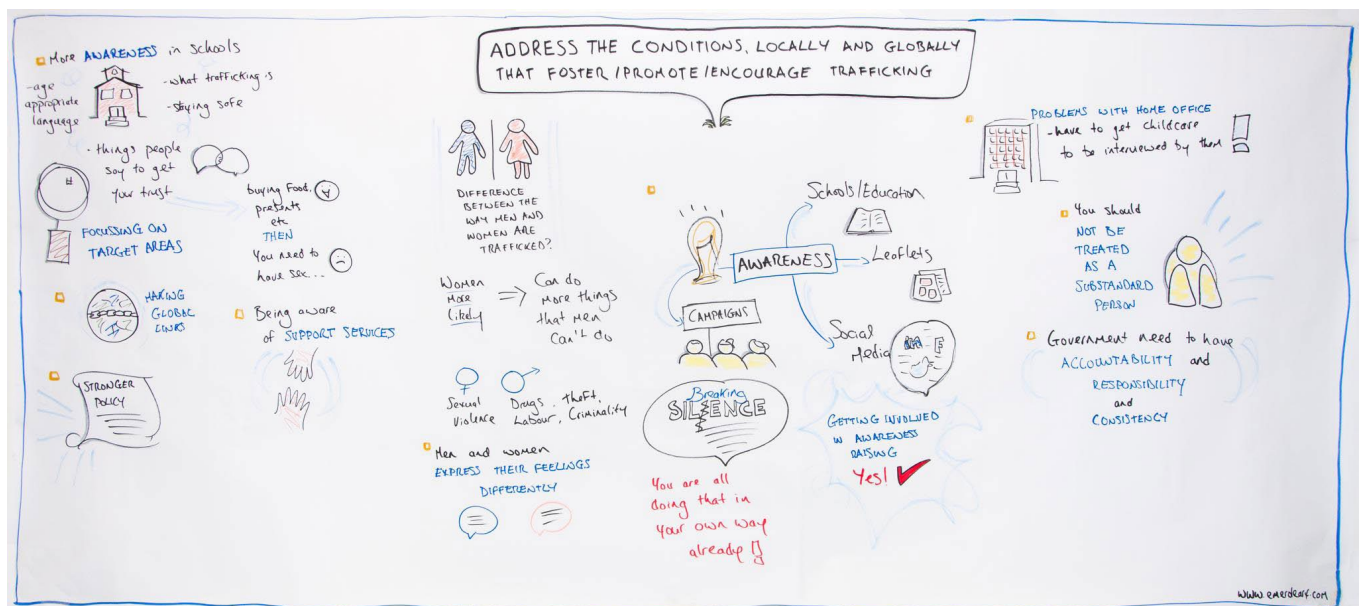 ADDRESS THE CONDITIONS, LOCALLY AND GLOBALLY
THAT FOSTER/PROMOTE/ENCOURAGE TRAFFICKING
More AWARENESS in schools
-age
appropriate
language
-what trafficking is
-staying safe
-things people
say to get
your trust
buying food,
presents
etc
THEN
You need to
have sex...
FOCUSSING ON
TARGET AREAS
MAKING
GLOBAL
LINKS
Being aware
of SUPPORT SERVICES
STRONGER
POLICY
DIFFERENCE
BETWEEN THE
WAY MEN AND
WOMEN ARE
TRAFFICKED?
Women
More
Likely
Can do
More things
that Men
Can't do
Sexual
Violence
Drugs, theft,
Labour, Criminality
Men and women
EXPRESS THEIR FEELINGS
DIFFERENTLY
AWARENESS
Schools/Education
Leaflets
Social
Media
CAMPAIGNS
Breaking
SILENCE
You are all
doing that in
your own way
already
GETTING INVOLVED
IN AWARENESS
RAISING
Yes!
PROBLEMS WITH HOME OFFICE
-have to get childcare
to be interviewed by them
You should
NOT BE
TREATED
AS A
SUBSTANDARD
PERSON
Government need to have
ACCOUNTABILITY and
RESPONSIBILITY
and
CONSISTENCY